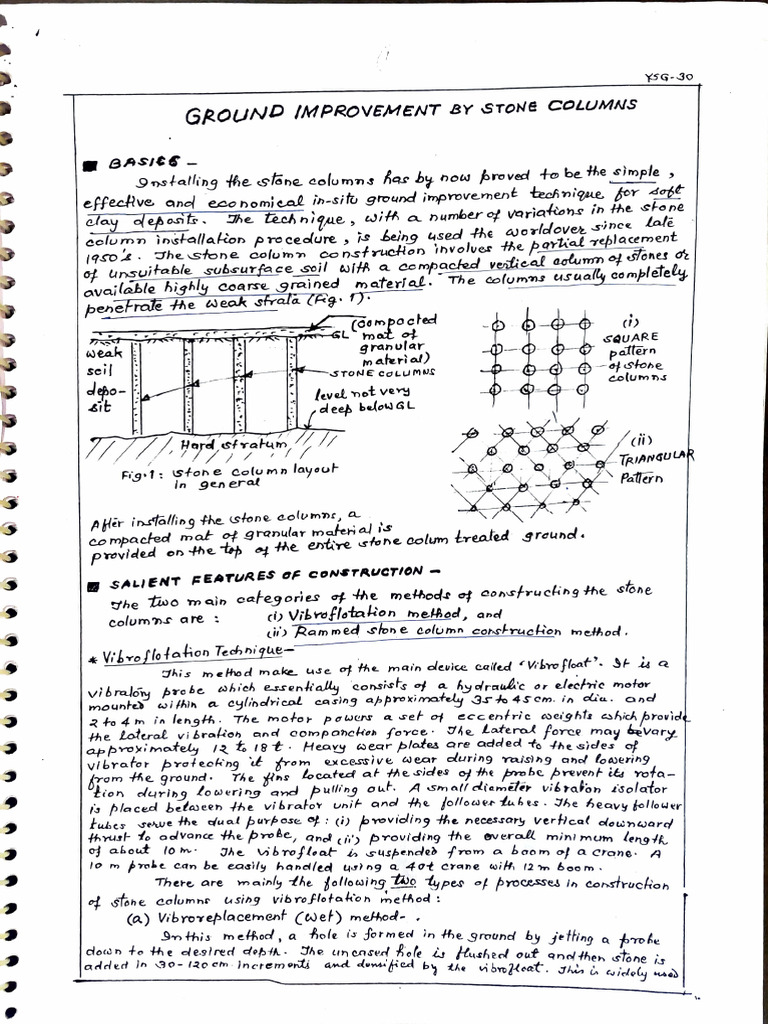 YSG-30
GROUND IMPROVEMENT BY STONE COLUMNS
■ BASICS –
Installing the stone columns has by now proved to be the simple,
effective and economical in-situ ground improvement technique for soft
clay deposits. The technique, with a number of variations in the stone
column installation procedure, is being used the worldover since late
1950's. The stone column construction involves the partial replacement
of unsuitable subsurface soil with a compacted vertical column of stones or
available highly coarse grained material. The columns usually completely
penetrate the weak strata (Fig. 1).
(compacted
GL mat of
granular
material)
weak
soil
depo-
sit
STONE COLUMNS
level not very
deep below GL
Hard stratum
Fig.1: stone column layout
in general
(i)
SQUARE
pattern
of stone
columns
(ii)
TRIANGULAR
Pattern
After installing the stone columns, a
compacted mat of granular material is
provided on the top of the entire stone colum treated ground.
■ SALIENT FEATURES OF CONSTRUCTION –
The two main categories of the methods of constructing the stone
columns are : (i) Vibroflotation method, and
(ii) Rammed stone column construction method.
* Vibroflotation Technique–
This method make use of the main device called 'Vibrofloat'. It is a
vibratory probe which essentially consists of a hydraulic or electric motor
mounted within a cylindrical casing approximately 35 to 45 cm. in dia. and
2 to 4 m in length. The motor powers a set of eccentric weights which provide
the lateral vibration and companction force. The lateral force may be vary
approximately 12 to 18 t. Heavy wear plates are added to the sides of
vibrator protecting it from excessive wear during raising and lowering
from the ground. The fins located at the sides of the probe prevent its rota-
tion during lowering and pulling out. A small diameter vibration isolator
is placed between the vibrator unit and the follower tubes. The heavy follower
tubes serve the dual purpose of : (i) providing the necessary vertical downward
thrust to advance the probe, and (ii) providing the overall minimum length
of about 10 m. The vibrofloat is suspended from a boom of a crane. A
10 m probe can be easily handled using a 40t crane with 12 m boom.
There are mainly the following two types of processes in construction
of stone columns using vibroflotation method :
(a) Vibroreplacement (Wet) method- .
In this method, a hole is formed in the ground by jetting a probe
down to the desired depth. The uncased hole is flushed out and then stone is
added in 30-120 cm increments and densified by the vibrofloat. This is widely used